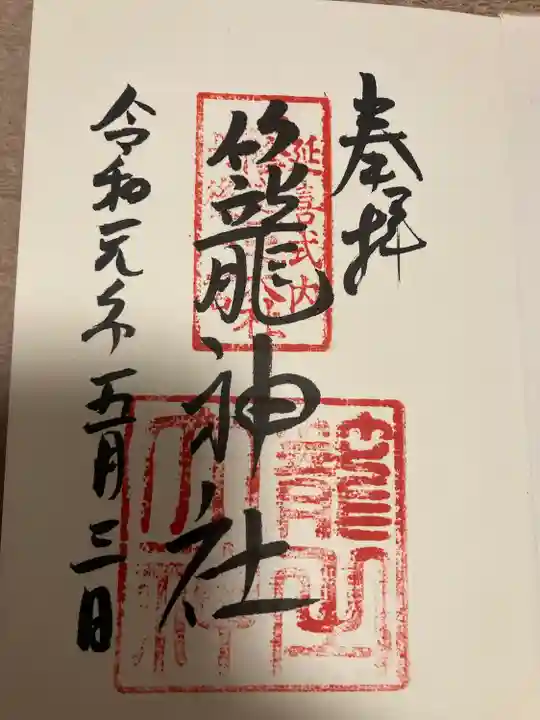 奉拝
延喜式内
籠神社
令和元年五月三日